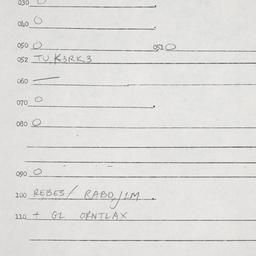 030 0
040 0
050 0 051 0
052 TU K3RK3
060 —
070 0
080 0
090 0
100 REBES/ RABO/LM
110 + GL ORNTLAX